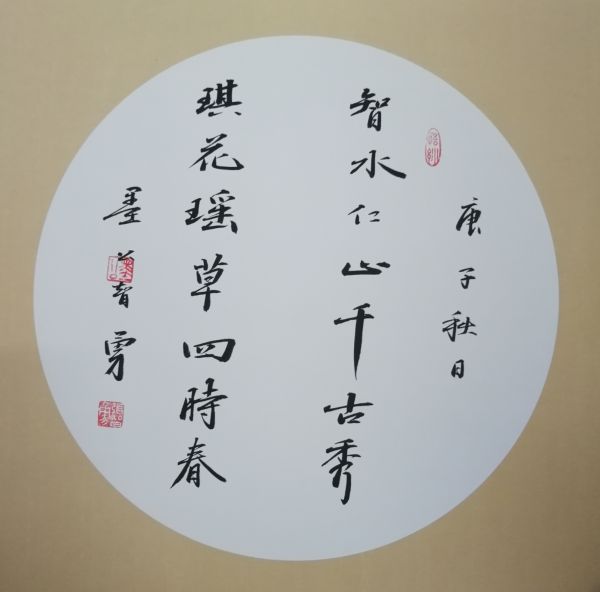 庚子秋日
智水仁山千古秀
琪花瑶草四時春
墨